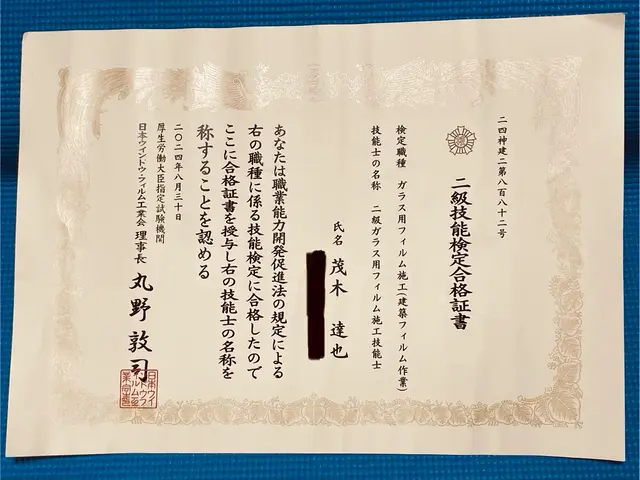 二四神建二第八百八十二号
二級技能検定合格証書
検定職種 ガラス用フィルム施工(建築フィルム作業)
技能士の名称 二級ガラス用フィルム施工技能士
氏名 茂木 達也
あなたは職業能力開発促進法の規定による
右の職種に係る技能検定に合格したので
ここに合格証書を授与し右の技能士の名称を
称することを認める
二〇二四年八月三十日
厚生労働大臣指定試験機関
日本ウインドウ・フィルム工業会 理事長 丸野敦司